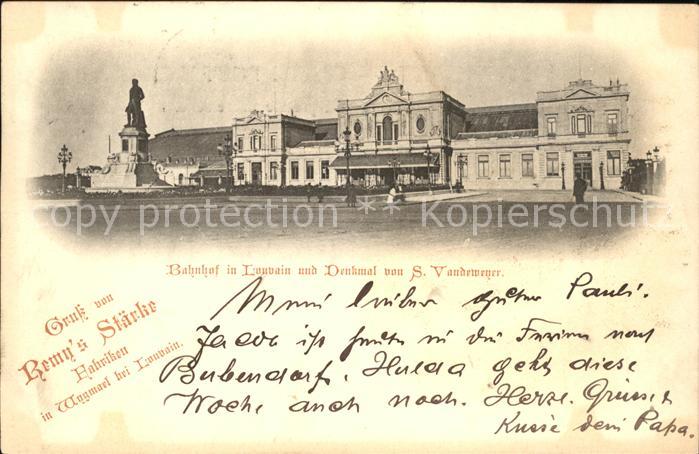 copy protection * Kopierschutz
Bahnhof in Louvain und Denkmal von S. Vandeweyer.
Gruß von
Remy's Stärke
Fabriken
in Wygmael bei Louvain.
Mein lieber guter Pauli.
Jacob ist heute in die Ferien nach
Bubendorf. Hulda geht diese
Woche auch noch. Herzl. Grüsse &
Küsse dein Papa.